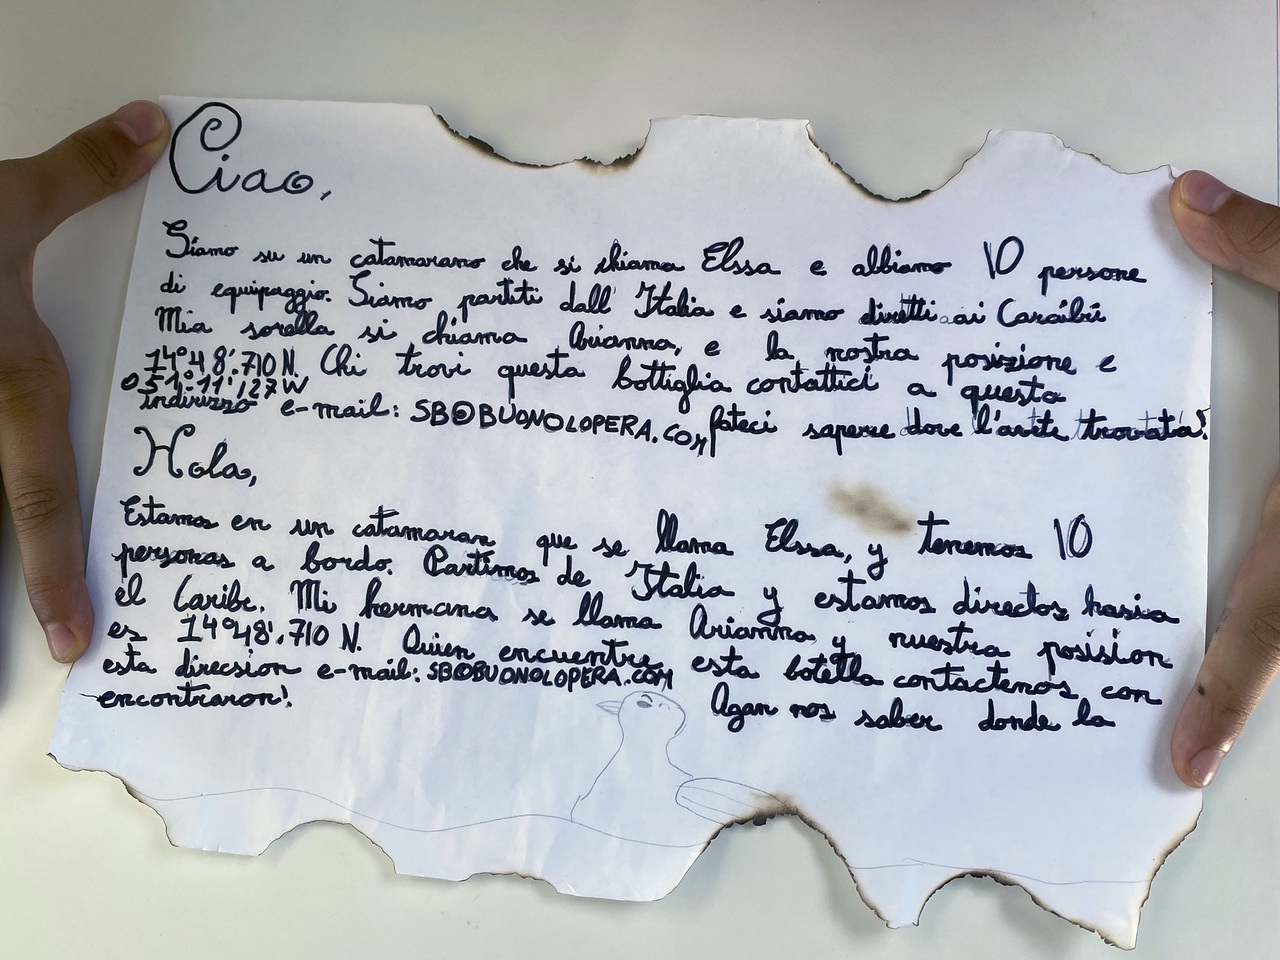 Ciao,
Siamo su un catamarano che si chiama Elssa e abbiamo 10 persone
di equipaggio. Siamo partiti dall'Italia e siamo diretti ai Caraibi
Mia sorella si chiama Arianna, e la nostra posizione e
14°48'.710 N. Chi trovi questa bottiglia contattici a questa
051°.11'127 W
indirizzo e-mail: SB@BUONOLOPERA.COM fateci sapere dove l'avete trovata!
Hola,
Estamos en un catamaran que se llama Elssa, y tenemos 10
personas a bordo. Partimos de Italia y estamos directos hasia
el Caribe. Mi hermana se llama Arianna y nuestra posision
es 14°48'.710 N. Quien encuentre esta botella contactenos con
esta direcsion e-mail: SB@BUONOLOPERA.COM Agan nos saber donde la
encontraron!